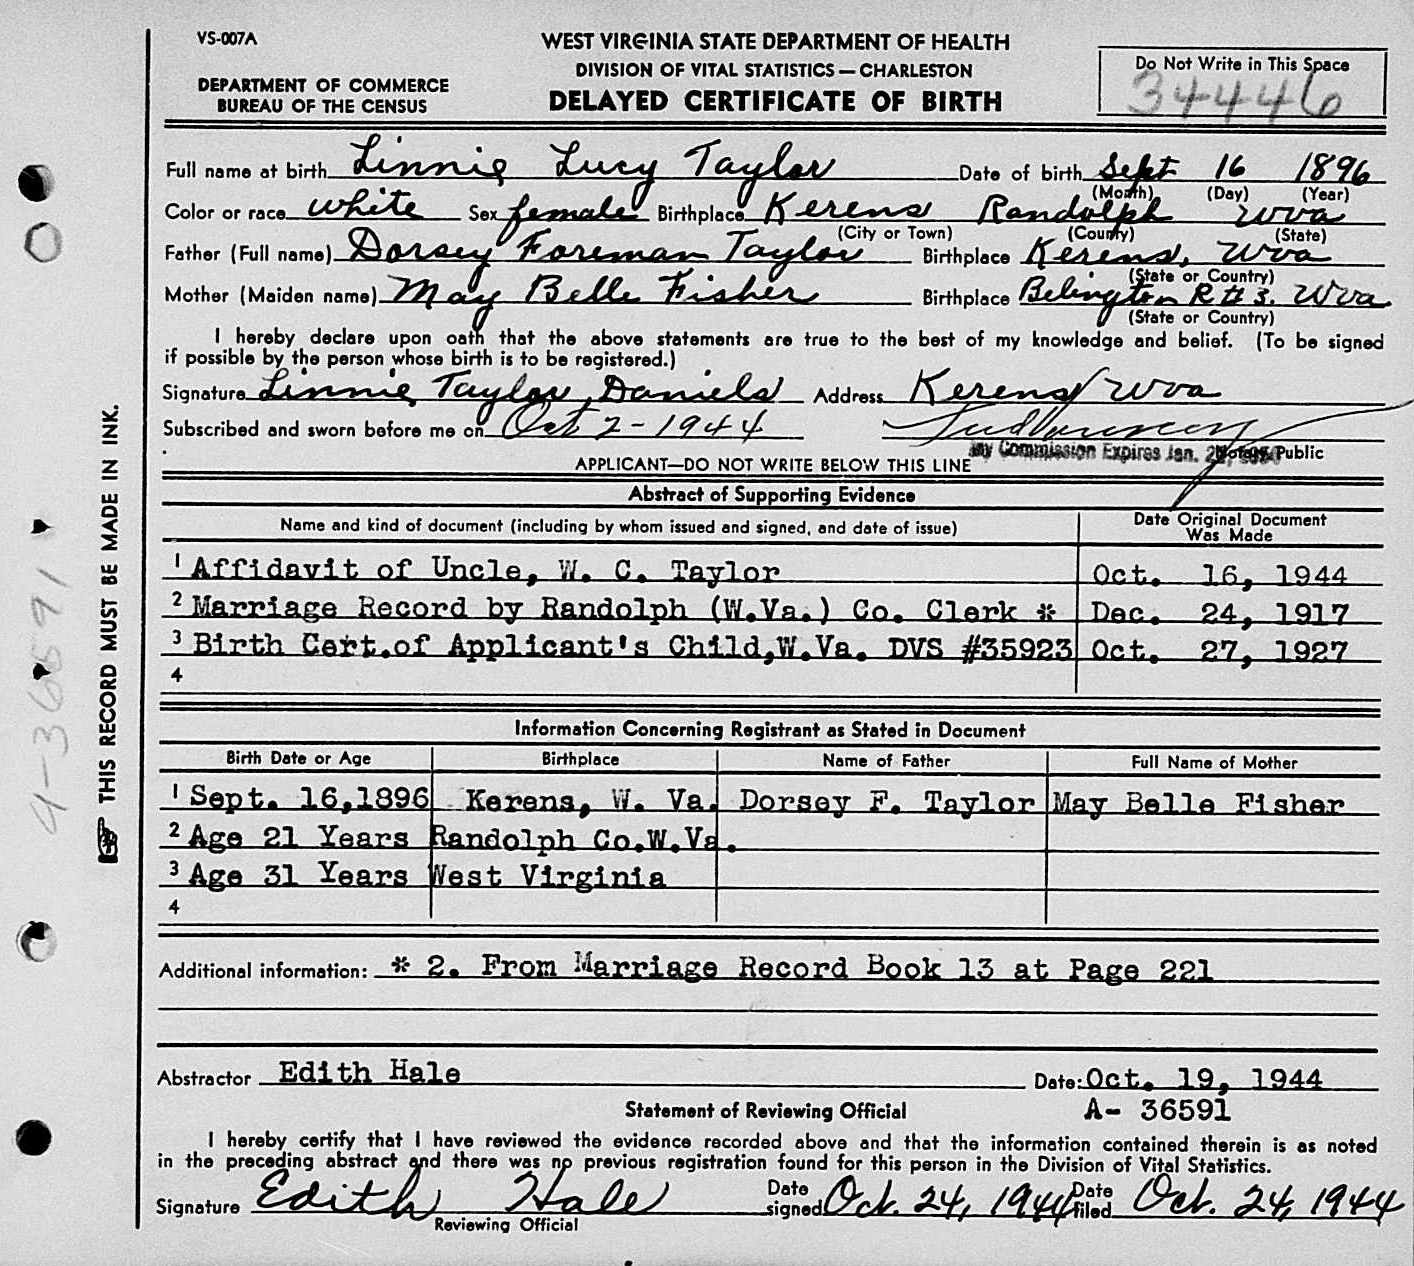 VS-007A
WEST VIRGINIA STATE DEPARTMENT OF HEALTH
DIVISION OF VITAL STATISTICS — CHARLESTON
DELAYED CERTIFICATE OF BIRTH
DEPARTMENT OF COMMERCE
BUREAU OF THE CENSUS
Do Not Write in This Space
34446
Full name at birth Linnie Lucy Taylor Date of birth Sept 16 1896
(Month) (Day) (Year)
Color or race white Sex female Birthplace Kerens Randolph Wva
(City or Town) (County) (State)
Father (Full name) Dorsey Foreman Taylor Birthplace Kerens, Wva
(State or Country)
Mother (Maiden name) May Belle Fisher Birthplace Belington R # 3. Wva
(State or Country)
I hereby declare upon oath that the above statements are true to the best of my knowledge and belief. (To be signed
if possible by the person whose birth is to be registered.)
Signature Linnie Taylor Daniels Address Kerens Wva
Subscribed and sworn before me on Oct 2-1944
My Commission Expires Jan. Notary Public
APPLICANT—DO NOT WRITE BELOW THIS LINE
Abstract of Supporting Evidence
Name and kind of document (including by whom issued and signed, and date of issue) Date Original Document
Was Made
1 Affidavit of Uncle, W. C. Taylor Oct. 16, 1944
2 Marriage Record by Randolph (W.Va.) Co. Clerk * Dec. 24, 1917
3 Birth Cert.of Applicant's Child,W.Va. DVS #35923 Oct. 27, 1927
4
Information Concerning Registrant as Stated in Document
Birth Date or Age Birthplace Name of Father Full Name of Mother
1 Sept. 16,1896 Kerens, W. Va. Dorsey F. Taylor May Belle Fisher
2 Age 21 Years Randolph Co.W.Va.
3 Age 31 Years West Virginia
4
Additional information: * 2. From Marriage Record Book 13 at Page 221
Abstractor Edith Hale Date: Oct. 19, 1944
Statement of Reviewing Official A- 36591
I hereby certify that I have reviewed the evidence recorded above and that the information contained therein is as noted
in the preceding abstract and there was no previous registration found for this person in the Division of Vital Statistics.
Signature Edith Hale Date signed Oct. 24, 1944 Date filed Oct. 24, 1944
Reviewing Official
THIS RECORD MUST BE MADE IN INK.
A-36591